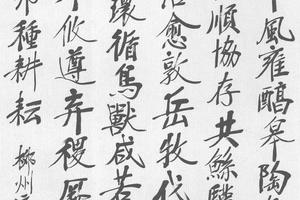 風雍皋陶
順協存共鯀驩
愈敦岳牧代
環循鳥獸咸若
攸遵弃稷
種耕耘
柳州